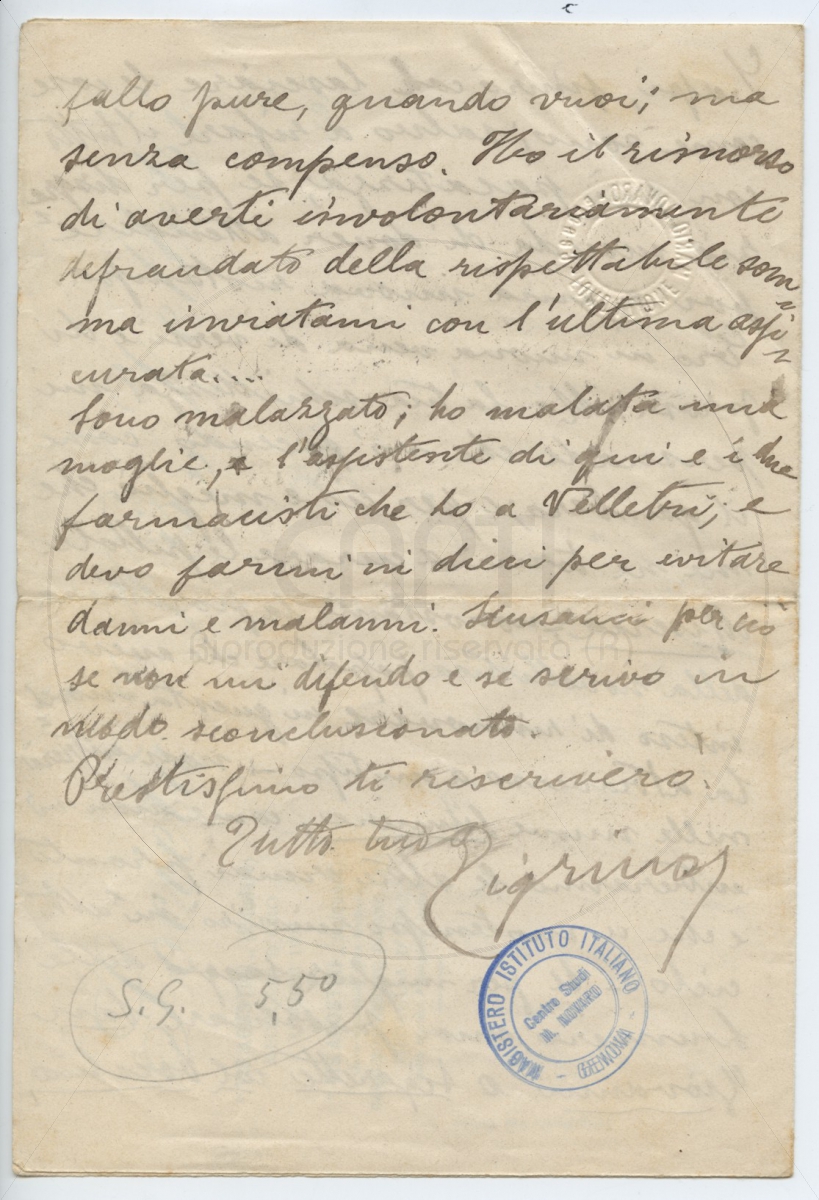 fallo pure, quando vuoi; ma
senza compenso. Ho il rimorso
di averti involontariamente
defraudato della rispettabile som=
ma inviatami con l'ultima assi=
curata....
Sono malazzato; ho malata mia
moglie, e l'assistente di qui e i due
farmacisti che ho a Velletri; e
devo farmi in dieci per evitare
danni e malanni. Scusami perciò
se non mi difendo e se scrivo in
modo sconclusionato.
Prestissimo ti riscriverò.
Tutto tuo
Zigrino
S.G. 5,50
MAGISTERO ISTITUTO ITALIANO
Centro Studi
M. NOVARO
GENOVA
Riproduzione riservata (R)